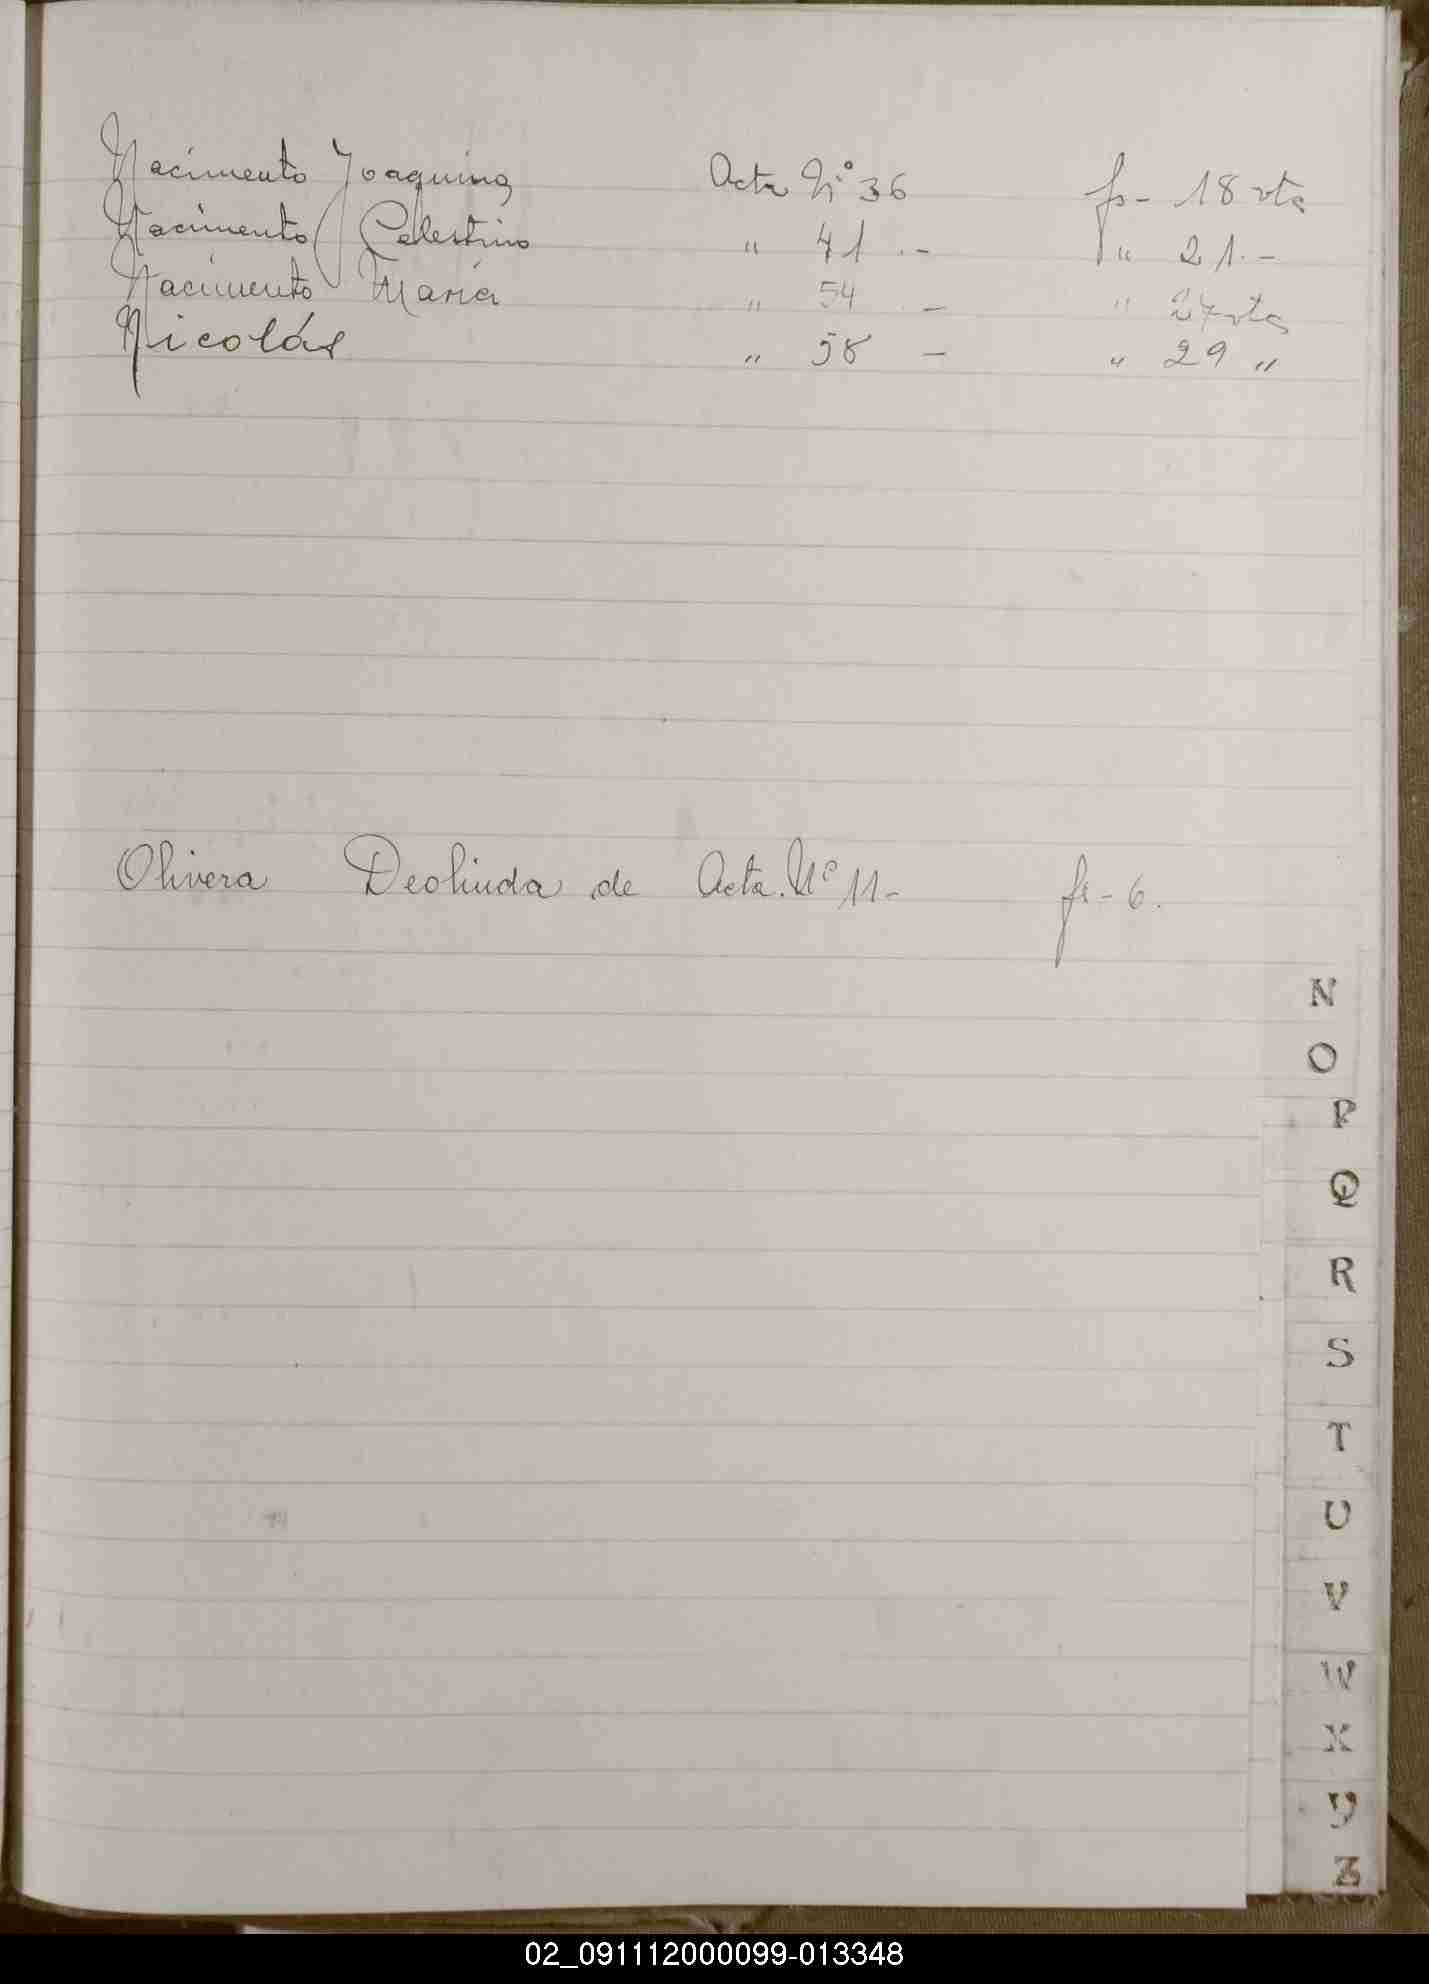 Nacimento Joaquina Acta Nº 36 fs- 18 vta
Nacimento Celestino " 41 .- " 21.-
Nacimento María " 54 - " 27 vta
Nicolás " 58 - " 29 "
Olivera Deolinda de Acta. Nº 11- fs- 6.
N
O
P
Q
R
S
T
U
V
W
X
Y
Z
02_091112000099-013348